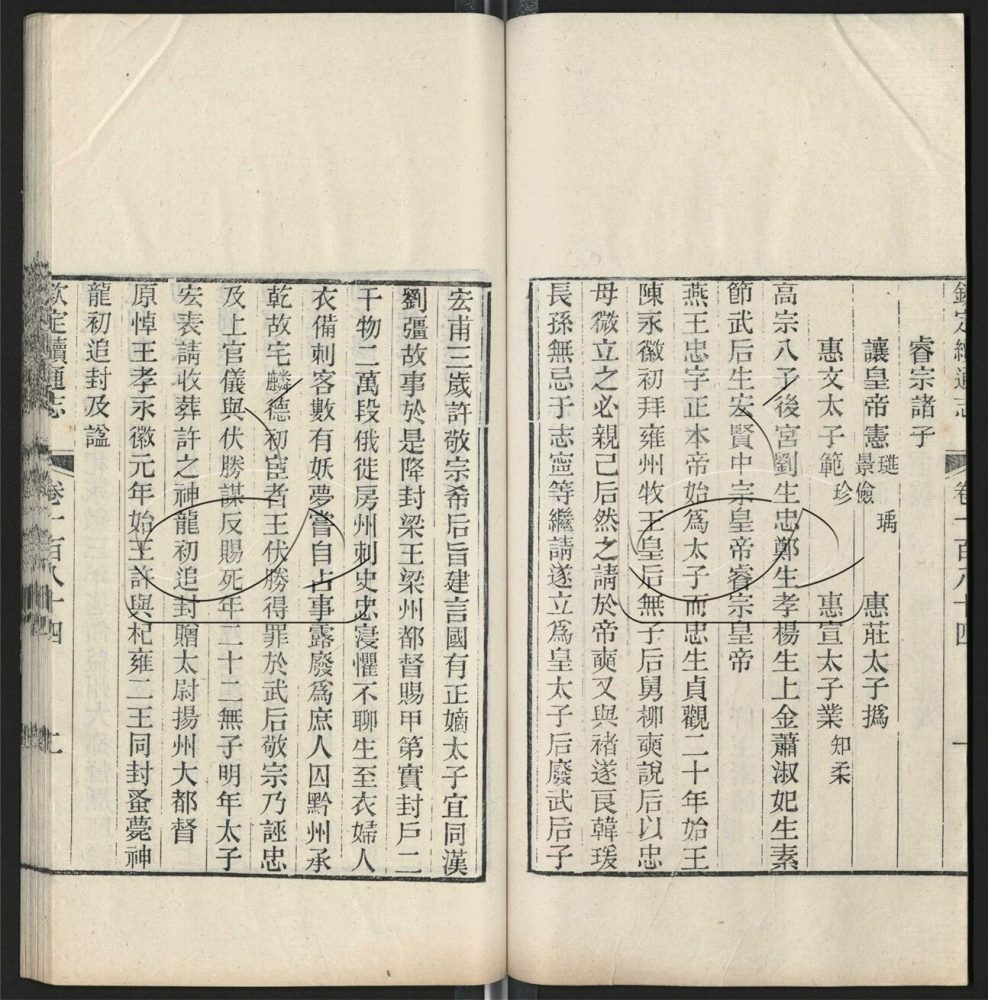 欽定續通志 卷一百八十四
睿宗諸子
讓皇帝憲 璡 景儉 瑀 惠莊太子撝
惠文太子範 珍 惠宣太子業 知柔
高宗八子後宮劉生忠鄭生孝楊生上金蕭淑妃生素
節武后生宏賢中宗皇帝睿宗皇帝
燕王忠字正本帝始爲太子而忠生貞觀二十年始王
陳永徽初拜雍州牧王皇后無子后舅柳奭說后以忠
母微立之必親己后然之請於帝奭又與褚遂良韓瑗
長孫無忌于志寧等繼請遂立爲皇太子后廢武后子
宏甫三歲許敬宗希后旨建言國有正嫡太子宜同漢
劉彊故事於是降封梁王梁州都督賜甲第實封戶二
千物二萬段俄徙房州刺史忠寖懼不聊生至衣婦人
衣備刺客數有妖夢嘗自占事露廢爲庶人囚黔州承
乾故宅麟德初宦者王伏勝得罪於武后敬宗乃誣忠
及上官儀與伏勝謀反賜死年二十二無子明年太子
宏表請收葬許之神龍初追封贈太尉揚州大都督
原悼王孝永徽元年始王許與杞雍二王同封蚤薨神
龍初追封及諡
欽定續通志 卷一百八十四